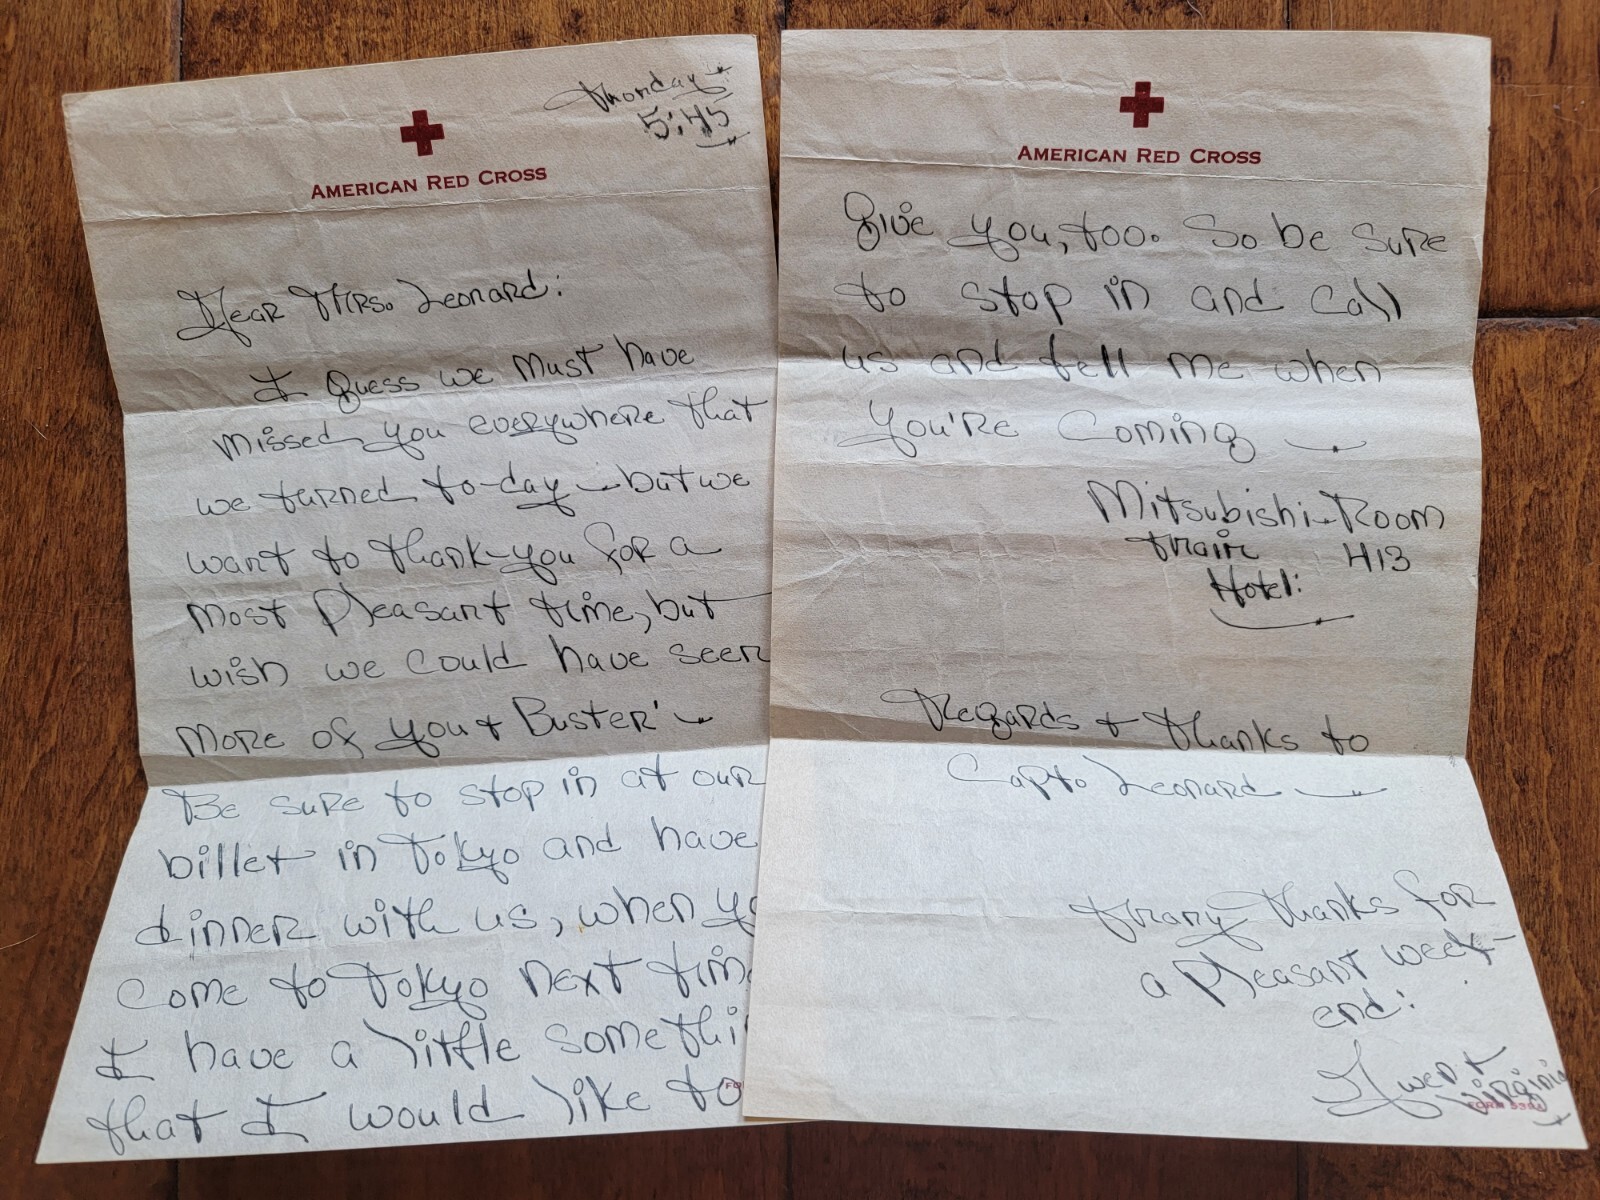 Monday
5:45
AMERICAN RED CROSS
Dear Mrs. Leonard:
I guess we must have
missed you everywhere that
we turned to-day - but we
want to thank-you for a
most pleasant time, but
wish we could have seen
more of you + Buster' -
Be sure to stop in at our
billet in Tokyo and have
dinner with us, when yo
come to Tokyo next time
I have a little somethi
that I would like to
FO
AMERICAN RED CROSS
give you, too. So be sure
to stop in and call
us and tell me when
you're coming -
Mitsubishi - Room
Main 413
Hotel:
Regards + thanks to
Capt. Leonard -
Many thanks for
a pleasant week-
end:
Gwen +
Virginia
FORM 539A